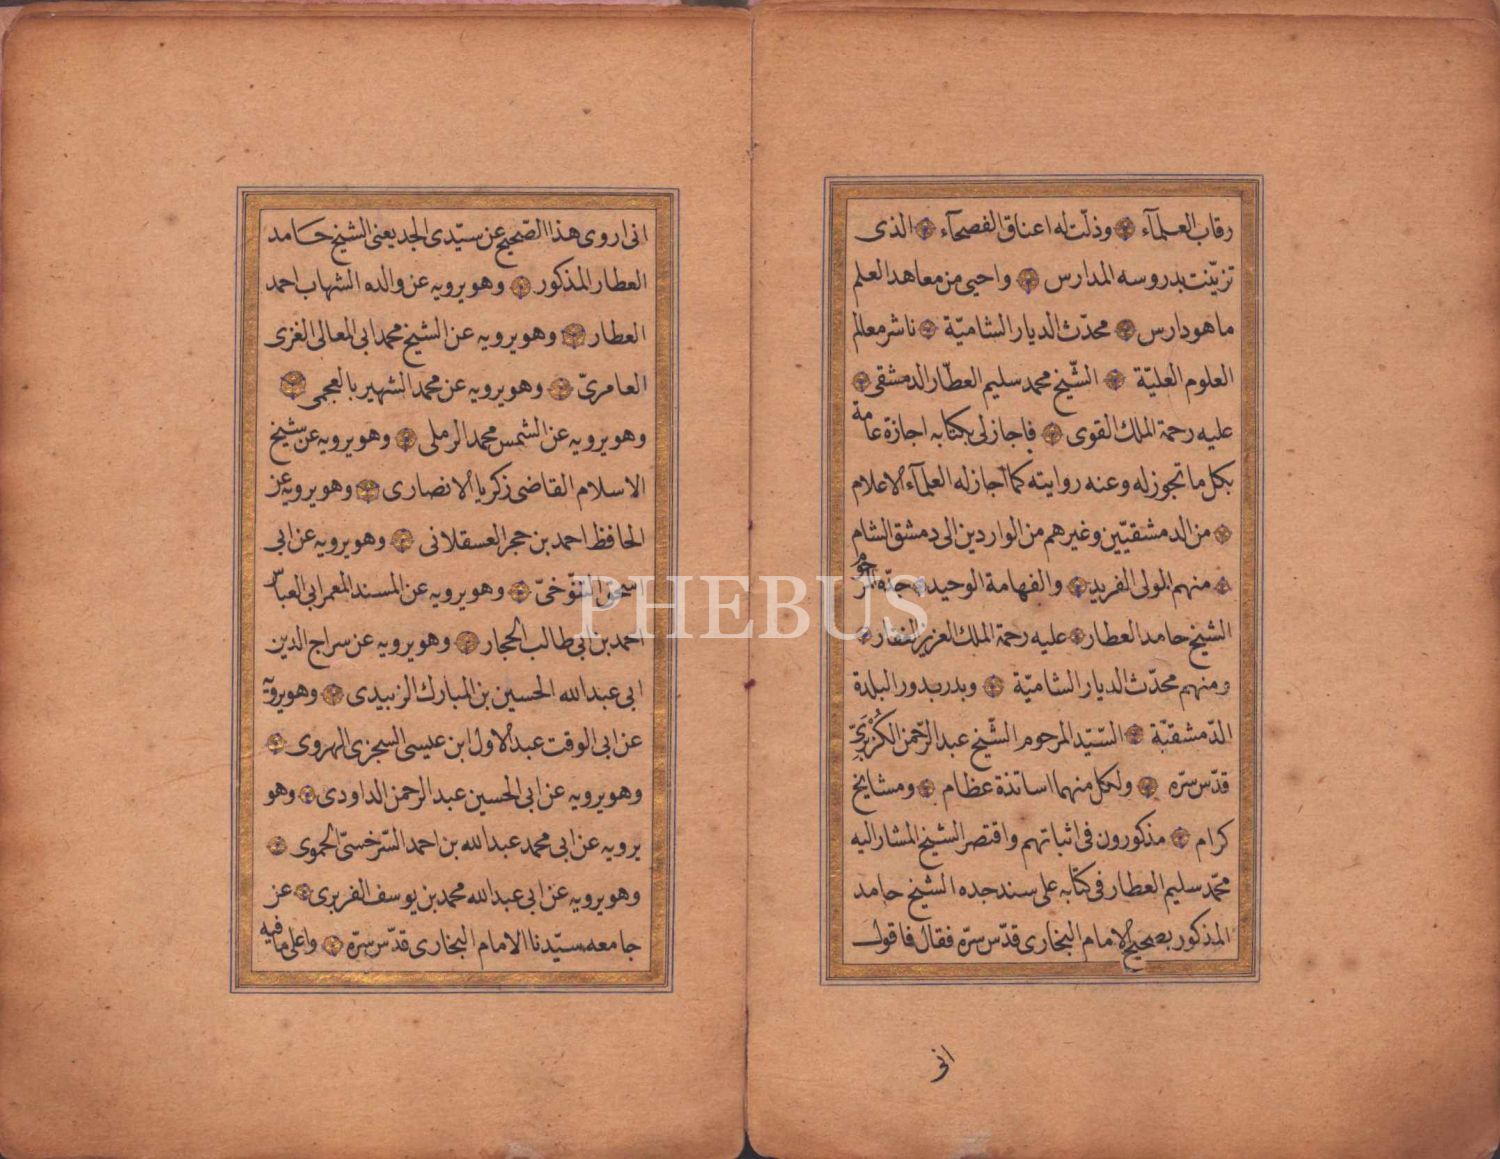 رقاب العلمآء وذلّت له اعناق الفصحآء الذى
تزيّنت بدروسه المدارس واحيى من معاهد العلم
ما هو دارس محدّث الديار الشاميّة ناشر معالم
العلوم العليّة الشّيخ محمد سليم العطّار الدمشقى
عليه رحمة الملك القوى فاجاز لى بكتابه اجازة عامة
بكل ما تجوز له وعنه روايته كما اجاز له العلمآء الاعلام
من الدمشقيّين وغيرهم من الواردين الى دمشق الشام
منهم المولى الفريد والفهامة الوحيد جدّه المرحوم
الشيخ حامد العطار عليه رحمة الملك العزيز الغفار
ومنهم محدّث الديار الشاميّة وبدر بدور البلدة
الدّمشقيّة السّيّد المرحوم الشّيخ عبد الرّحمن الكُزْبَرِىّ
قدّس سرّه ولكل منهما اساتذة عظام ومشايخ
كرام مذكورون فى اثباتهم واقتصر الشيخ المشار اليه
محمّد سليم العطار فى كتابه على سند جده الشيخ حامد
المذكور بصحيح الامام البخارى قدّس سرّه فقال فاقول
انى
انى اروى هذا الصّحيح عن سيّدى الجد يعنى الشيخ حامد
العطار المذكور وهو يرويه عن والده الشهاب احمد
العطار وهو يرويه عن الشيخ محمد ابى المعالى الغزى
العامرىّ وهو يرويه عن محمد الشهير بالعجمى
وهو يرويه عن الشمس محمد الرملى وهو يرويه عن شيخ
الاسلام القاضى زكريا الانصارى وهو يرويه عن
الحافظ احمد بن حجر العسقلانى وهو يرويه عن ابى
اسحق التنوّخىّ وهو يرويه عن المسند المعمر ابى العباس
احمد بن ابى طالب الحجار وهو يرويه عن سراج الدين
ابى عبد الله الحسين بن المبارك الزبيدى وهو يرويه
عن ابى الوقت عبد الاول ابن عيسى السجزى الهروى
وهو يرويه عن ابى الحسين عبد الرحمن الداودى وهو
يرويه عن ابى محمد عبد الله بن احمد السّرخسىّ الحموى
وهو يرويه عن ابى عبد الله محمد بن يوسف الفربرى عن
جامعه سيّدنا الامام البخارى قدّس سرّه واعلى ما فيه
PHEBUS